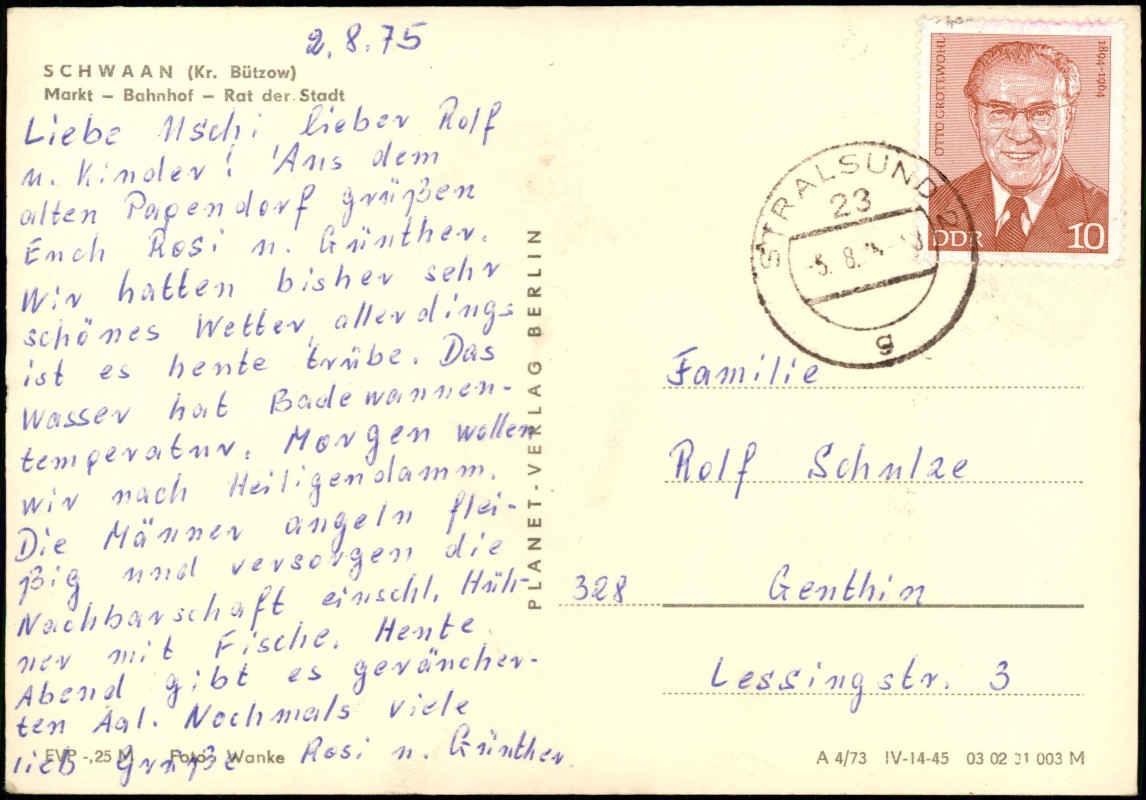 2.8.75
SCHWAAN (Kr. Bützow)
Markt – Bahnhof – Rat der Stadt
Liebe Uschi lieber Rolf
u. Kinder! Aus dem
alten Papendorf grüßen
Euch Rosi u. Günther.
Wir hatten bisher sehr
schönes Wetter, allerdings
ist es heute trübe. Das
Wasser hat Badewannen-
temperatur. Morgen wollen
wir nach Heiligendamm.
Die Männer angeln flei-
ßig und versorgen die
Nachbarschaft einschl. Hüh-
ner mit Fische. Heute
Abend gibt es geräucher-
ten Aal. Nochmals viele
lieb Grüße Rosi u. Günther.
EVP -,25 M Foto: Wanke
PLANET-VERLAG BERLIN
OTTO GROTEWOHL
1894-1964
DDR 10
STRALSUND 2
23
8.
g
Familie
Rolf Schulze
328 Genthin
Lessingstr. 3
A 4/73 IV-14-45 03 02 01 003 M